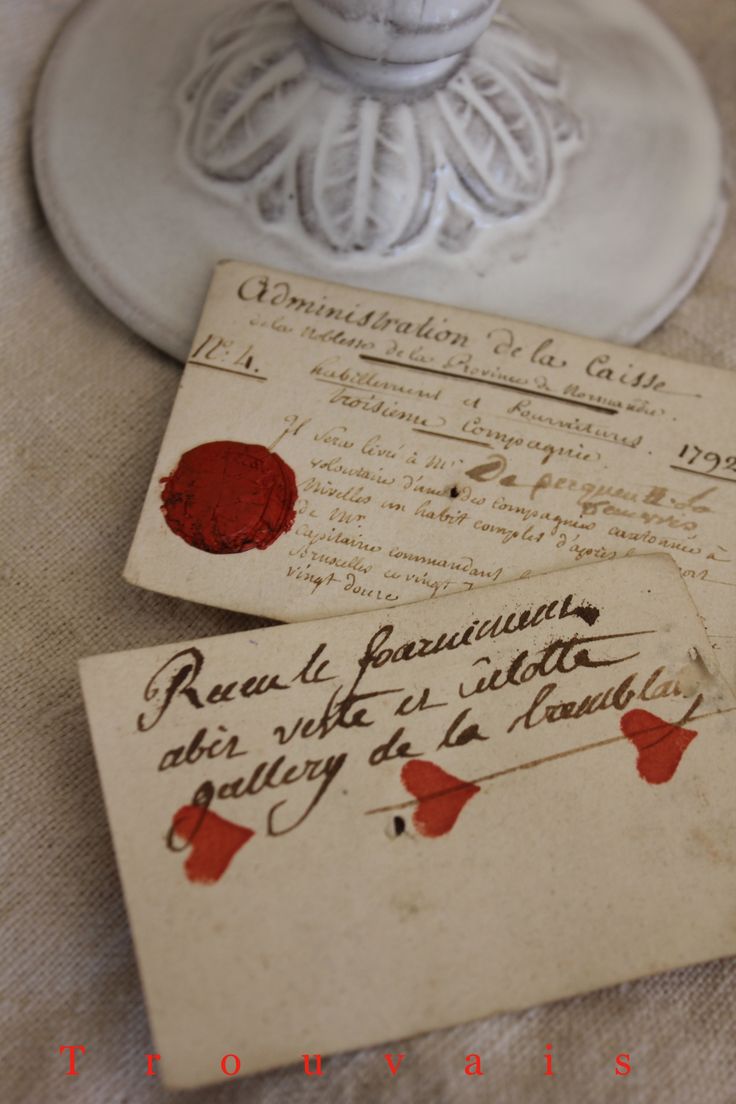 Administration de la Caisse
de la Noblesse de la Province de Normandie.
N.º 4.
habillement et fournitures.
troisieme Compagnie.
1792
Il sera livré à Mr
volontaire d'une des Compagnies cantonnée à
Nivelles un habit complet d'après
de Mr
Capitaine commandant
Bruxelles ce vingt
vingt douze
Recu le fourniment
abit veste et culotte
gallery de la tremblais
T r o u v a i s